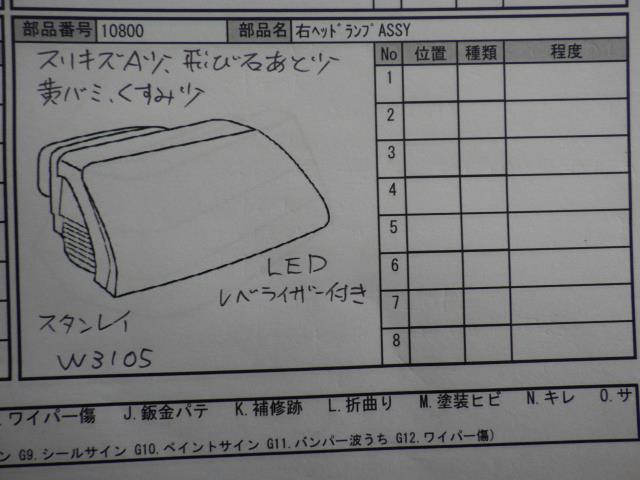 部品番号 10800 部品名 右ﾍｯﾄﾞﾗﾝﾌﾟASSY
スリキズAツ、飛び石あとツ
黄バミ、くすみツ
No 位置 種類 程度
1
2
3
4
5
6
7
8
LED
レベライザー付き
スタンレイ
W3105
.ワイパー傷 J.鈑金パテ K.補修跡 L.折曲り M.塗装ヒビ N.キレ O.サ
ン G9.シールサイン G10.ペイントサイン G11.バンパー波うち G12.ワイパー傷)